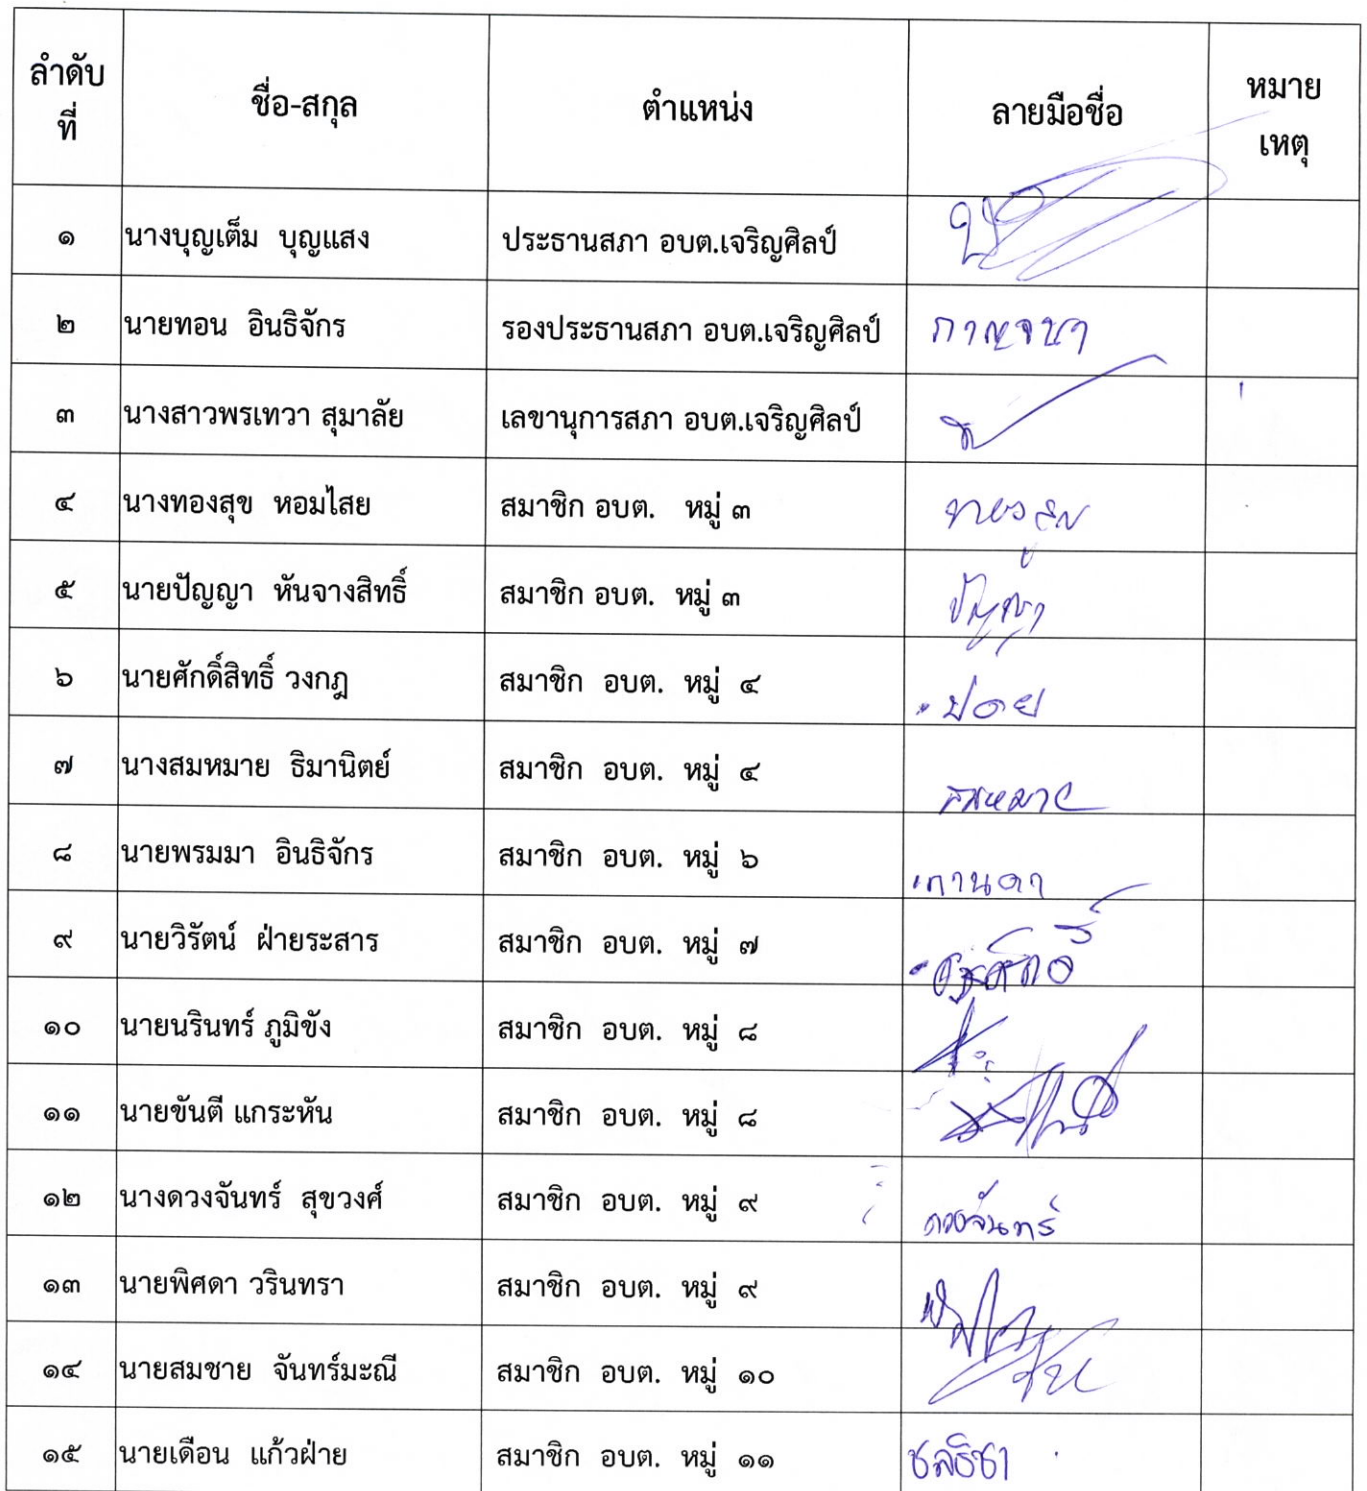 ลำดับที่ ชื่อ-สกุล ตำแหน่ง ลายมือชื่อ หมายเหตุ
๑ นางบุญเต็ม บุญแสง ประธานสภา อบต.เจริญศิลป์
๒ นายทอน อินธิจักร รองประธานสภา อบต.เจริญศิลป์ กาญจนา
๓ นางสาวพรเทวา สุมาลัย เลขานุการสภา อบต.เจริญศิลป์
๔ นางทองสุข หอมไสย สมาชิก อบต. หมู่ ๓
๕ นายปัญญา หันจางสิทธิ์ สมาชิก อบต. หมู่ ๓ ปัญญา
๖ นายศักดิ์สิทธิ์ วงกฎ สมาชิก อบต. หมู่ ๔
๗ นางสมหมาย ธิมานิตย์ สมาชิก อบต. หมู่ ๔ สมหมาย
๘ นายพรมมา อินธิจักร สมาชิก อบต. หมู่ ๖ กานดา
๙ นายวิรัตน์ ฝ่ายระสาร สมาชิก อบต. หมู่ ๗
๑๐ นายนรินทร์ ภูมิขัง สมาชิก อบต. หมู่ ๘
๑๑ นายขันตี แกระหัน สมาชิก อบต. หมู่ ๘
๑๒ นางดวงจันทร์ สุขวงศ์ สมาชิก อบต. หมู่ ๙ ดวงจันทร์
๑๓ นายพิศดา วรินทรา สมาชิก อบต. หมู่ ๙
๑๔ นายสมชาย จันทร์มะณี สมาชิก อบต. หมู่ ๑๐
๑๕ นายเดือน แก้วฝ่าย สมาชิก อบต. หมู่ ๑๑ ชลธิชา